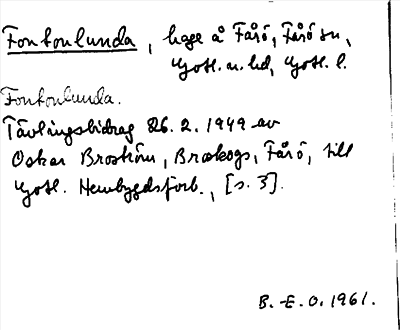 Fonkonlunda, hage å Fårö, Fårö sn,
Gotl. n. hd, Gotl. l.
Fonkonlunda.
Tävlingsbidrag 26. 2. 1949 av
Oskar Broström, Broskogs, Fårö, till
Gotl. Hembygdsförb., [s. 3].
B. E. O. 1961.